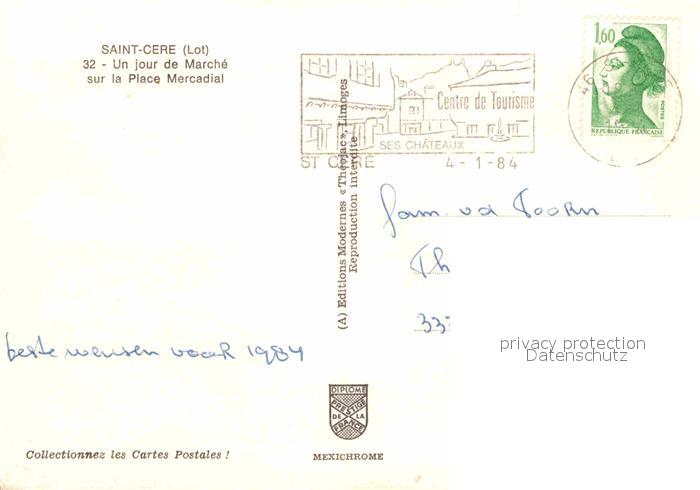 SAINT-CERE (Lot)
32 - Un jour de Marché
sur la Place Mercadial
Centre de Tourisme
SES CHÂTEAUX
ST CERE
4-1-84
46
1,60
POSTES
REPUBLIQUE FRANCAISE
(A) Editions Modernes «Théojac», Limoges
Reproduction interdite
fam. vd Toorn
Th
33
beste wensen voor 1984
privacy protection
Datenschutz
DIPLOME
PRESTIGE
DE LA
FRANCE
MEXICHROME
Collectionnez les Cartes Postales !